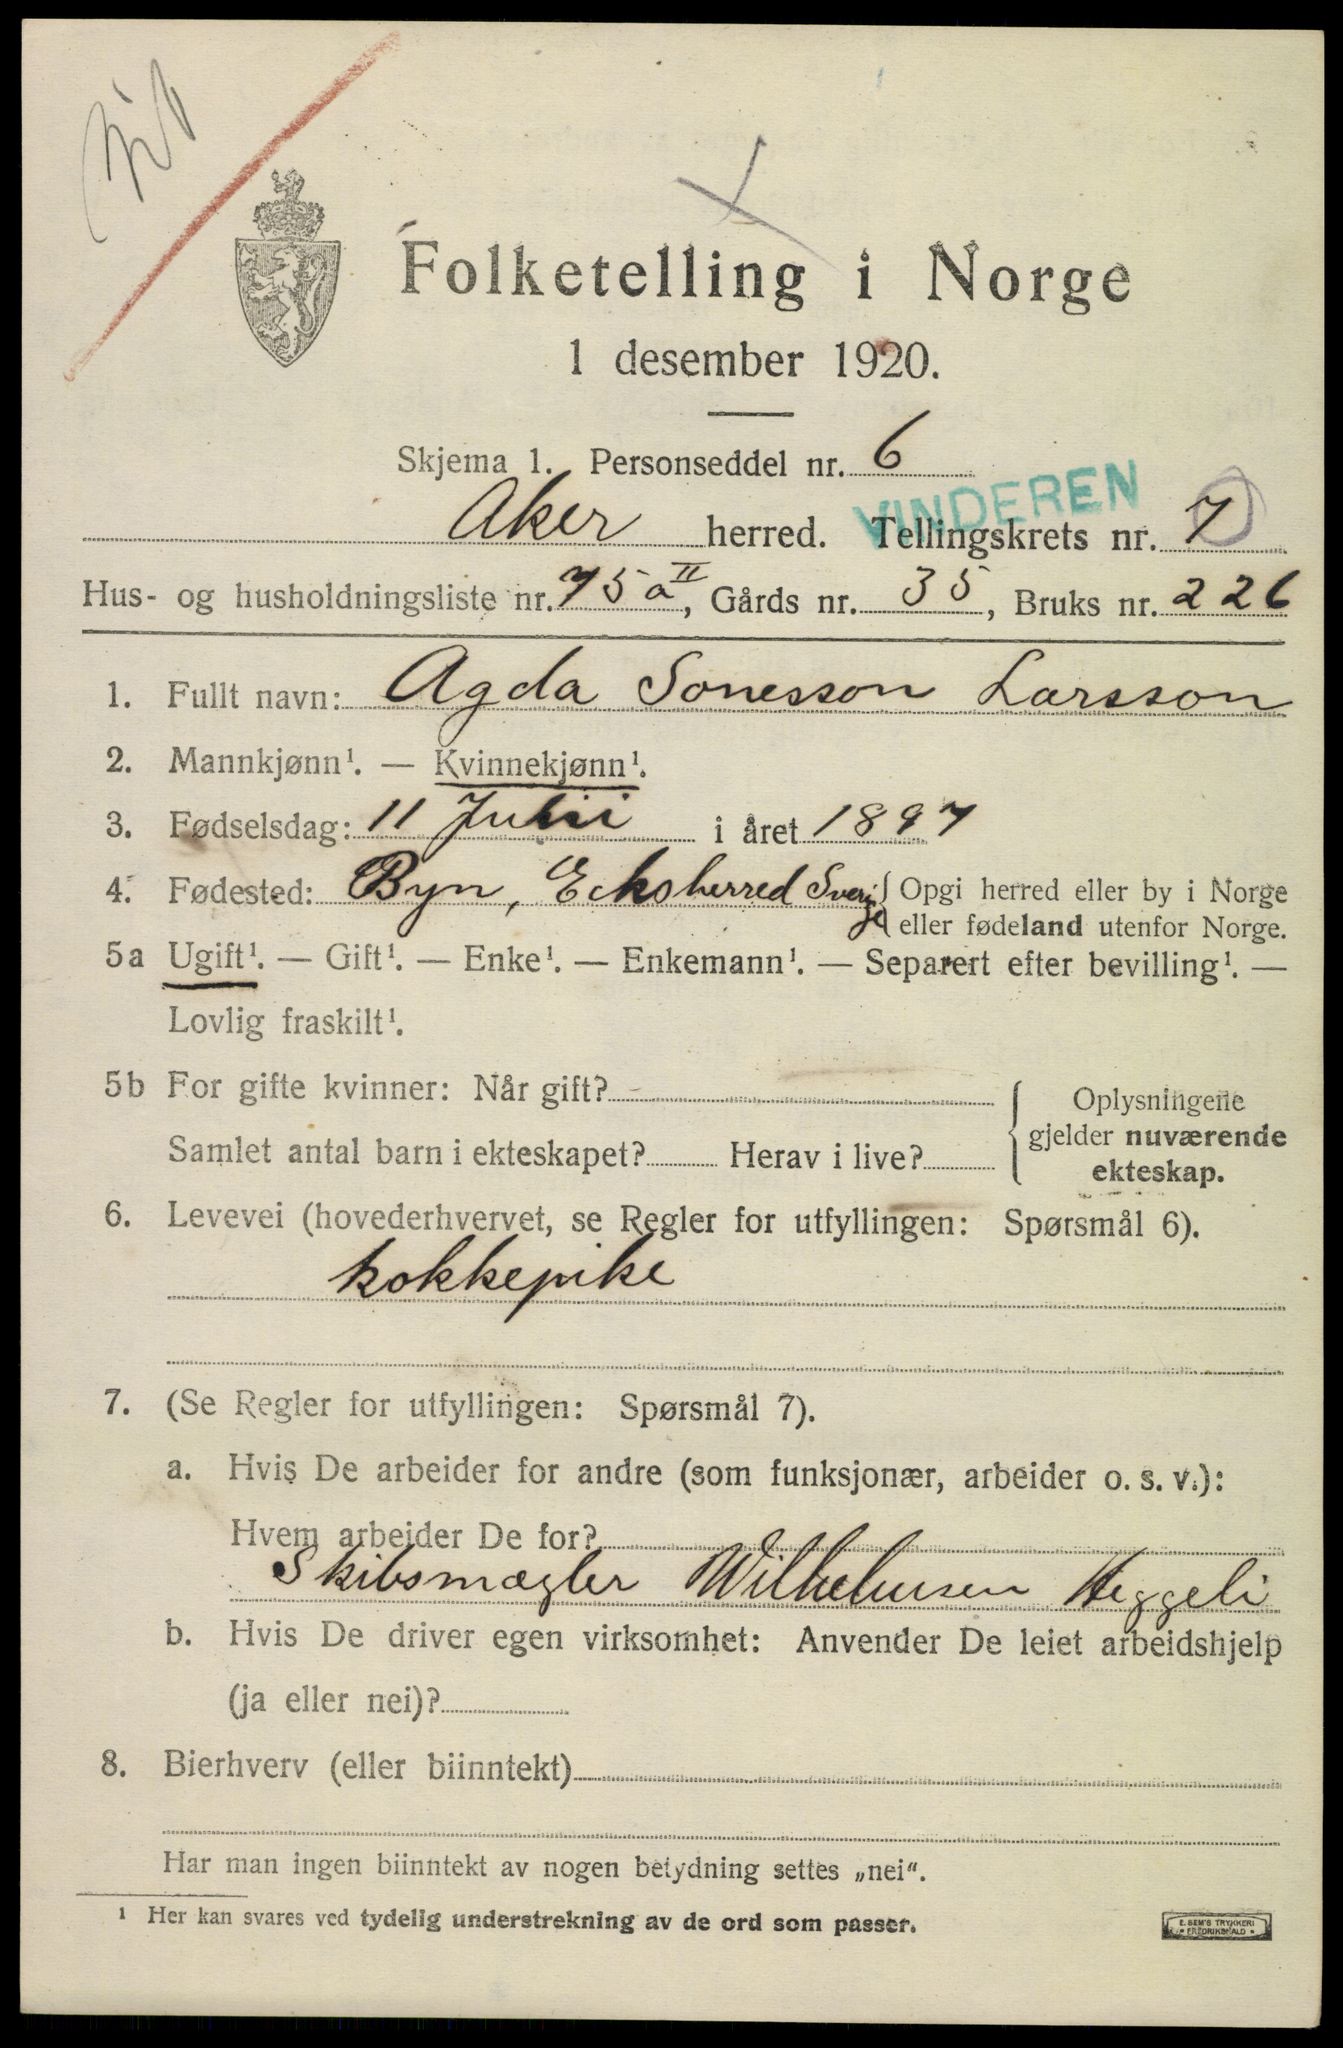 Folketelling i Norge
1 desember 1920.
Skjema 1. Personseddel nr. 6
VINDEREN
Aker herred. Tellingskrets nr. 7
Hus- og husholdningsliste nr. 75a II, Gårds nr. 35, Bruks nr. 226
1. Fullt navn: Agda Sonesson Larsson
2. Mannkjønn¹. — Kvinnekjønn¹.
3. Fødselsdag: 11 Juli i året 1897
4. Fødested: Byn, Ecksherred Sverige { Opgi herred eller by i Norge
eller fødeland utenfor Norge.
5a Ugift¹. — Gift¹. — Enke¹. — Enkemann¹. — Separert efter bevilling¹. —
Lovlig fraskilt¹.
5b For gifte kvinner: Når gift?
Samlet antal barn i ekteskapet? Herav i live?
Oplysningene
gjelder nuværende
ekteskap.
6. Levevei (hovederhvervet, se Regler for utfyllingen: Spørsmål 6).
kokkepike
7. (Se Regler for utfyllingen: Spørsmål 7).
a. Hvis De arbeider for andre (som funksjonær, arbeider o. s. v.):
Hvem arbeider De for?
Skibsmægler Wilhelmsen Heggeli
b. Hvis De driver egen virksomhet: Anvender De leiet arbeidshjelp
(ja eller nei)?
8. Bierhverv (eller biinntekt)
Har man ingen biinntekt av nogen betydning settes „nei“.
¹ Her kan svares ved tydelig understrekning av de ord som passer.
E. SEM'S TRYKKERI
FREDRIKSHALD